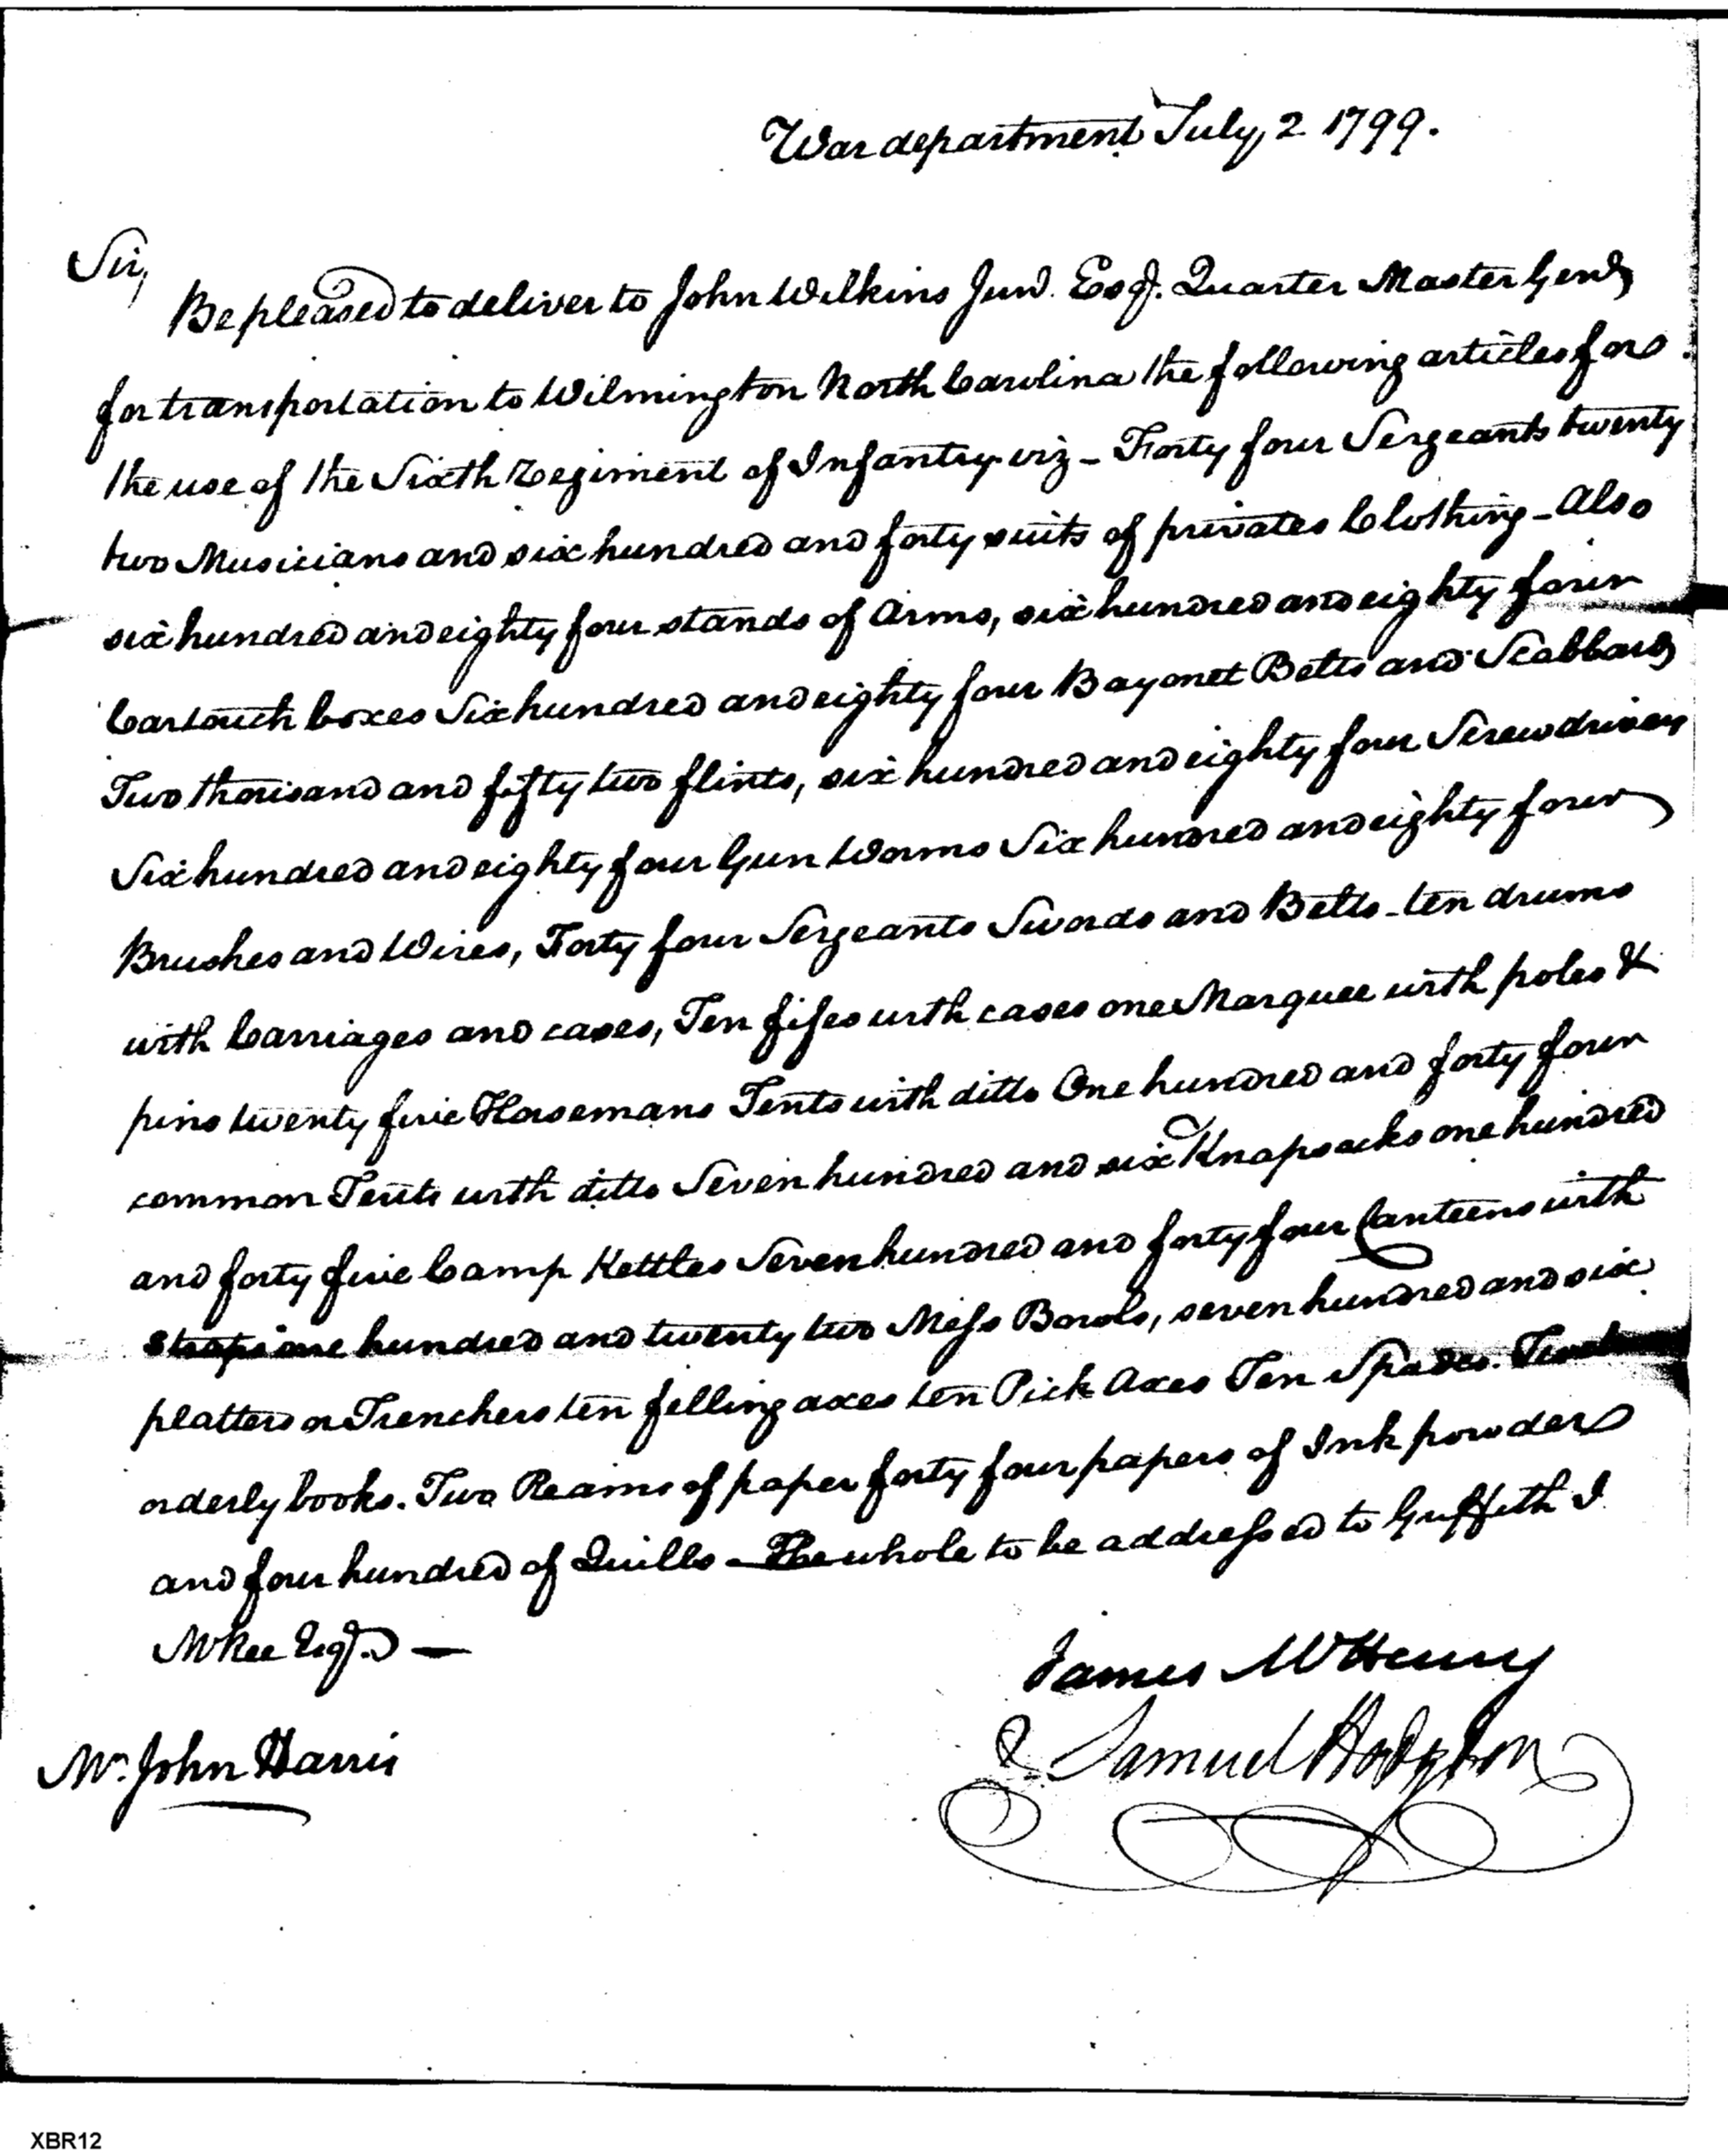 War department July, 2 1799.
Sir,
Be pleased to deliver to John Wilkins Junr. Esqr. Quarter Master Genl,
for transportation to Wilmington North Carolina the following articles for
the use of the Sixth Regiment of Infantry viz - Forty four Sergeants twenty
two Musicians and six hundred and forty suits of privates Clothing - Also
six hundred and eighty four stands of Arms, six hundred and eighty four
Cartouch boxes Six hundred and eighty four Bayonet Belts and Scabbards
Two thousand and fifty two flints, six hundred and eighty four Screw drivers
Six hundred and eighty four Gun Worms Six hundred and eighty four
Brushes and Wires, Forty four Sergeants Swords and Belts - ten drums
with Carriages and cases, Ten fifes with cases one Marquee with poles &
pins twenty five Horsemans Tents with ditto One hundred and forty four
common Tents with ditto Seven hundred and six Knapsacks one hundred
and forty five Camp Kettles Seven hundred and forty four Canteens with
straps one hundred and twenty two Mess Bowls, seven hundred and six
platters or Trenchers ten felling axes ten Pick Axes Ten Spades. Twelve
orderly books. Two Reams of paper forty four papers of Ink powder
and four hundred of Quills - The whole to be addressed to Griffith I
McRee Esqr. —
James McHenry
Samuel Hodgdon
Mr. John Harris
XBR12